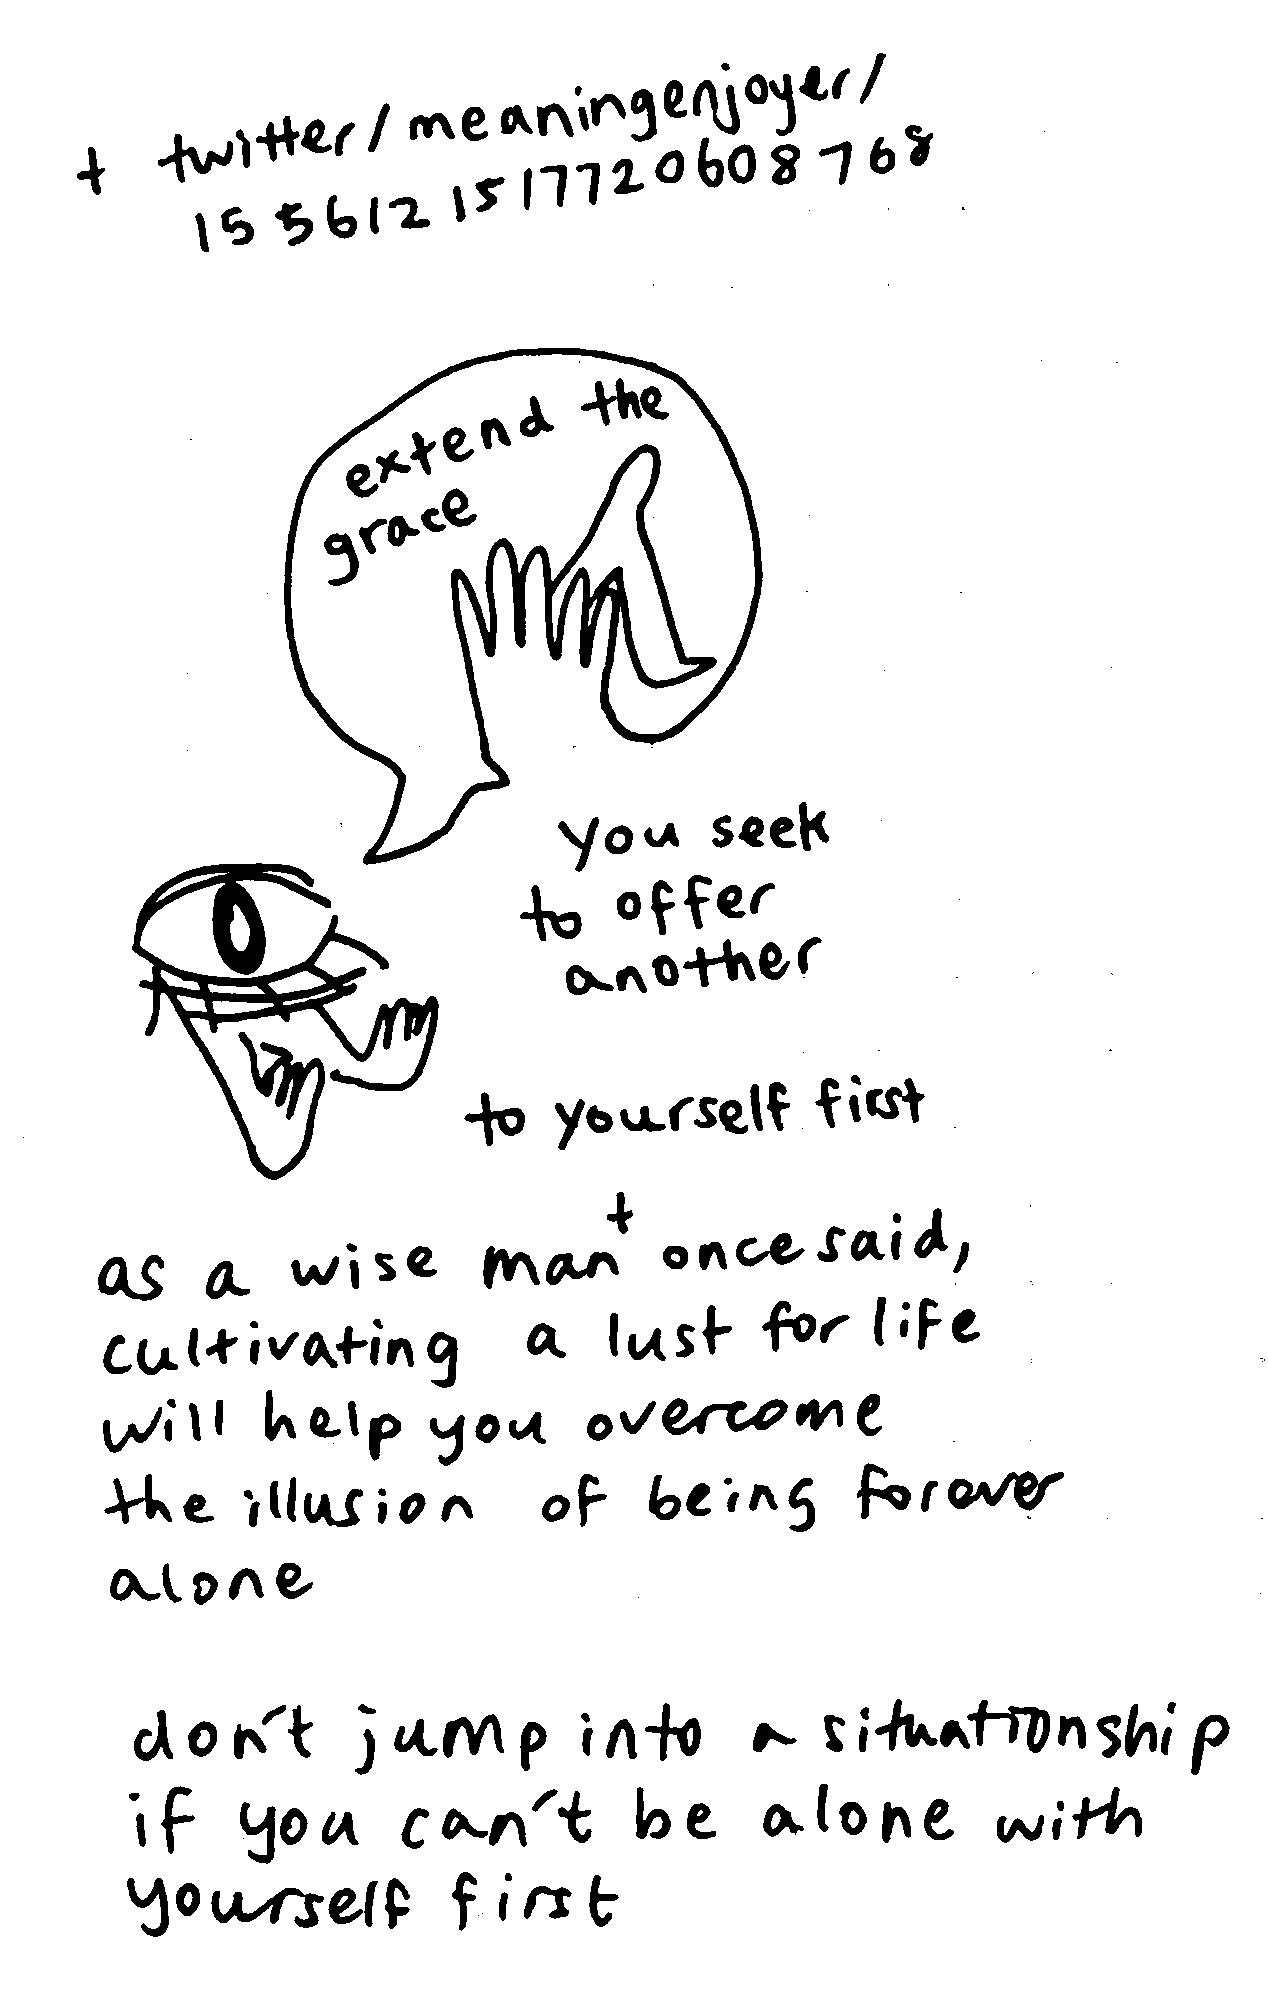 + twitter/meaningenjoyer/
1556121517720608768
extend the
grace
you seek
to offer
another
to yourself first
as a wise man+ once said,
cultivating a lust for life
will help you overcome
the illusion of being forever
alone
don't jump into a situationship
if you can't be alone with
yourself first